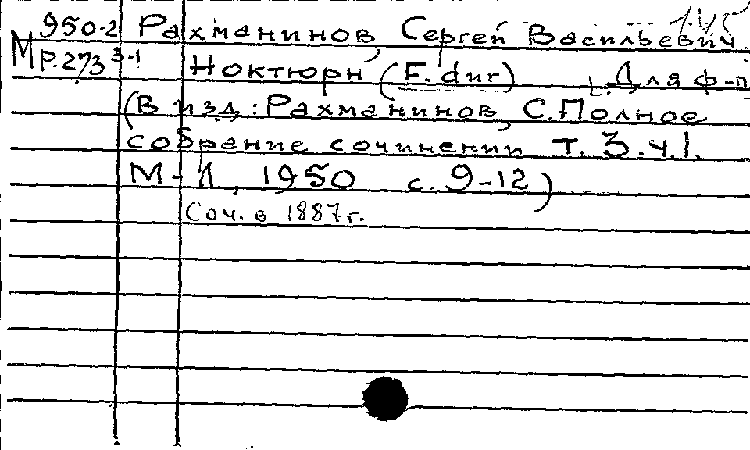 950-2 Рахманинов, Сергей Васильевич.
М Р.273 3-1 Ноктюрн (F. dur) [Для ф-п
(В изд.: Рахманинов, С. Полное
собрание сочинении т. 3. ч. 1.
М-Л, 1950 с. 9-12)
Соч. в 1887 г.